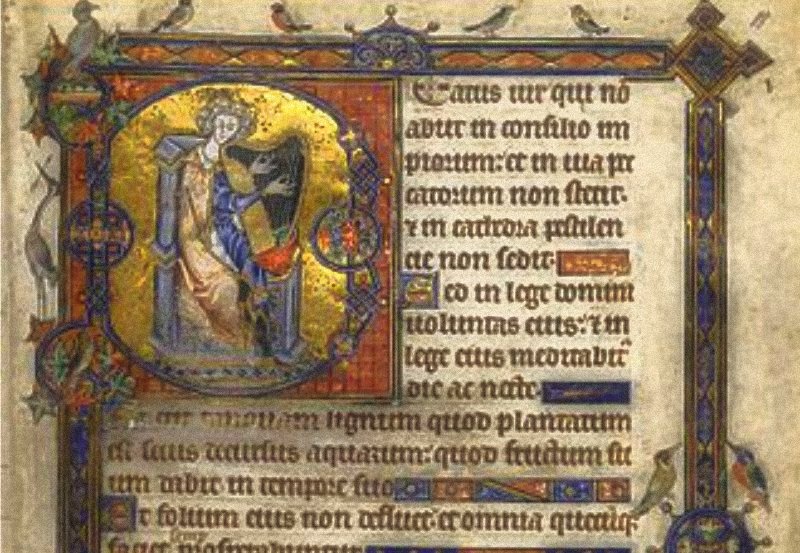 Eatus uir qui nō
abiit in consilio im
piorum: et in uia pec
catorum non stetit.
⁊ in cathedra pestilen
cie non sedit.
Sed in lege domini
uoluntas eius: ⁊ in
lege eius meditabit᷑
die ac nocte.
tanquam lignum quod plantatum
est secus decursus aquarum: quod fructum su
um dabit in tempore suo
Et folium eius non defluet: et omnia quecūq;
faciet prosperabuntur